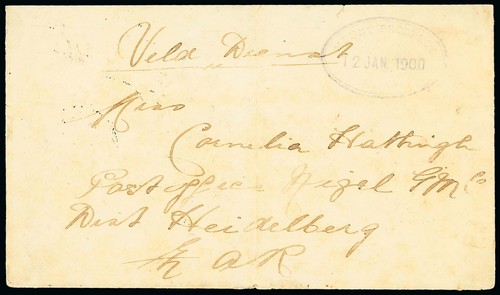 Veld Dienst
12 JAN. 1900
Miss
Cornelia Hattingh
Post Office Nigel G M Co
Dist Heidelberg
Z A R